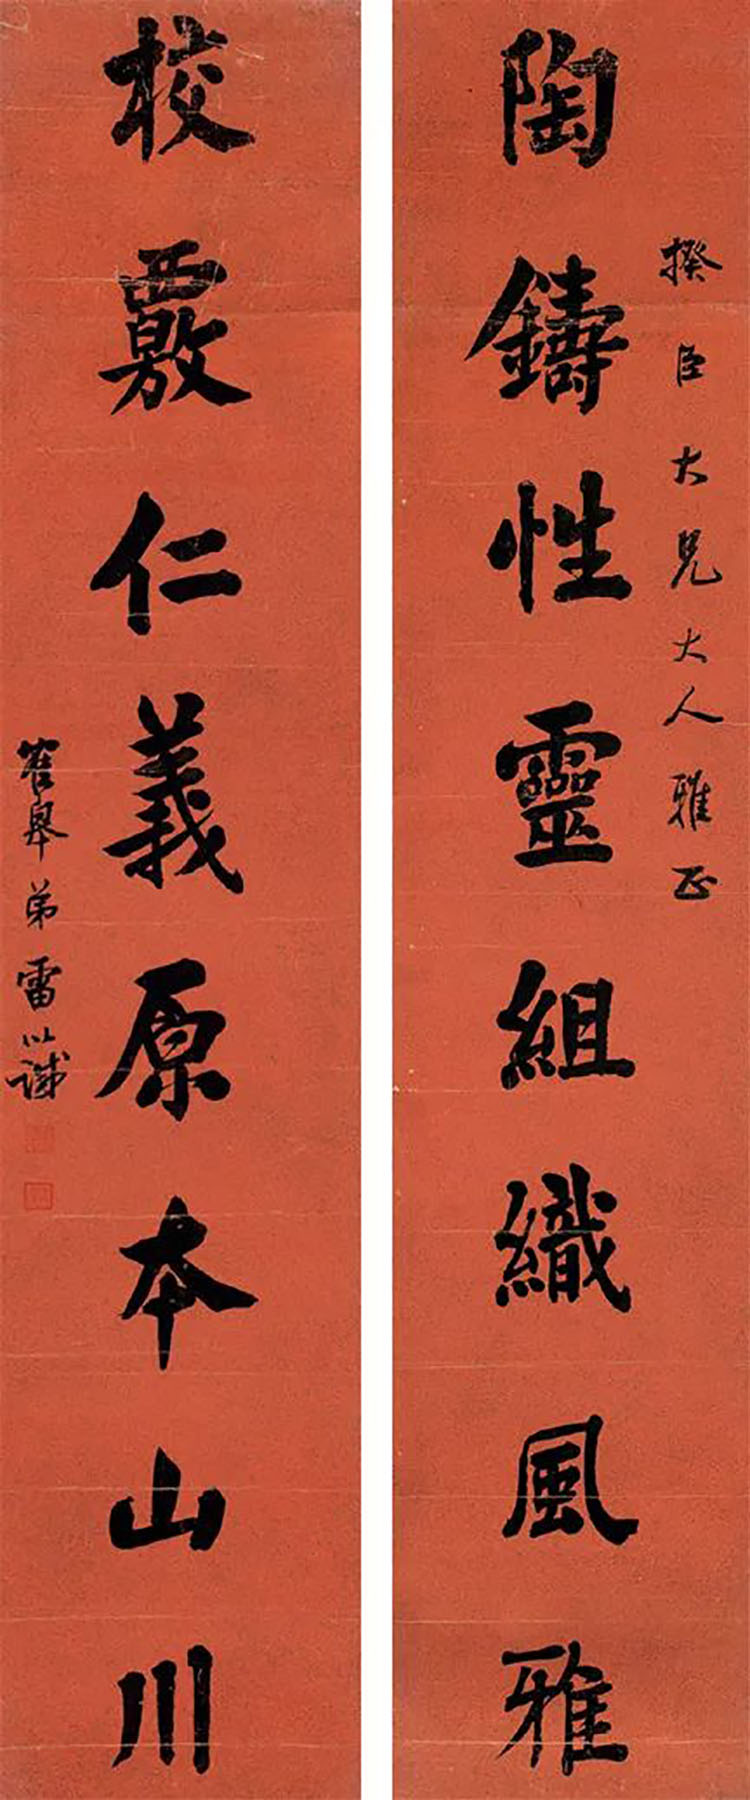 揆臣大兄大人雅正
陶鑄性靈組織風雅
校覈仁義原本山川
崔皋弟雷以諴